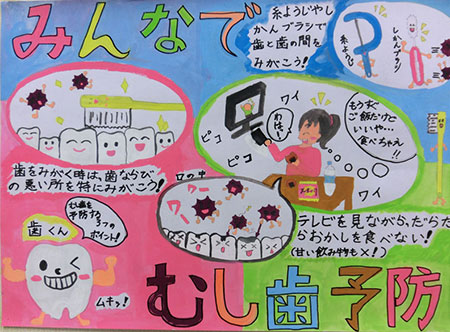 みんなで
糸ようじやし
かんブラシで
歯と歯の間を
みがこう!
糸ようじ
しかんブラシ
歯をみがく時は、歯ならび
の悪い所を特にみがこう!
ワイ
ピコ
ピコ
ワイ
もうすぐ
ご飯だけど
いいや…
食べちゃえ
!!
口の中
ワー
ワー
テレビを見ながら、だらだ
らおかしを食べない!
(甘い飲み物も×!)
むし歯を
予防する
3つの
ポイント!
歯くん
ムキッ!
むし歯予防